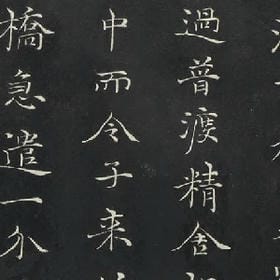 過普渡精舍
中而令子来
橋急遣一介